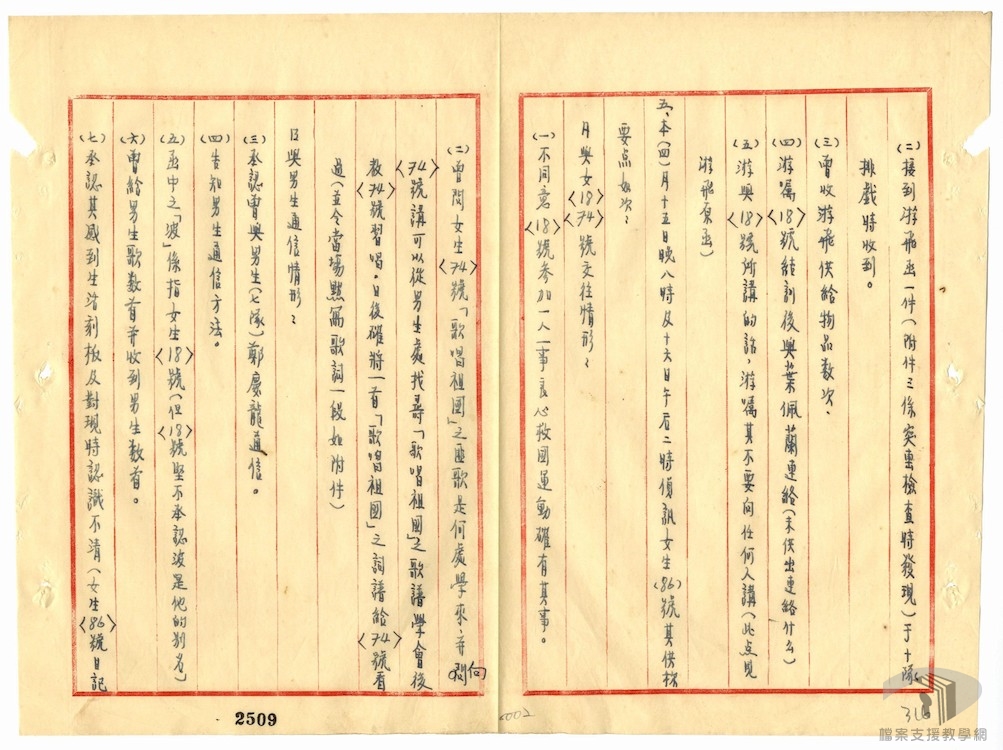 (二)接到游飛函一件(附件三係突擊檢查時發現)于十隊
排戲時收到。
(三)曾收游飛供給物品数次、
(四)游囑〈18〉號結訓後與葉佩蘭連絡(未供出連絡什么)
(五)游與〈18〉號所講的話，游囑其不要向任何人講(此点見
游飛原函)
五、本(四)月十五日晚八時及十六日午后二時偵訊女生〈86〉號其供
要点如次：
月與女〈18〉〈74〉號交往情形：
(一)不同意〈18〉號参加一人一事良心救國運動確有其事。
(二)曾問女生〈74〉號「歌唱祖國」之匪歌是何處學來并向
〈74〉號講可以從男生處找尋「歌唱祖國」之歌譜學會後
教〈74〉號習唱。日後確將一首「歌唱祖國」之詞譜給〈74〉號看
過(並令當場默寫歌詞一段如附件)
且與男生通信情形：
(三)承認曾與男生(七隊)鄭慶龍通信。
(四)告知男生通信方法。
(五)函中之「波」係指女生〈18〉號(但〈18〉號堅不承認波是他的别名)
(六)曾給男生歌数首并收到男生数首。
(七)承認其感到生活刻板及對現時認識不清(女生〈86〉號日記
2509
0002
檔案支援教學網